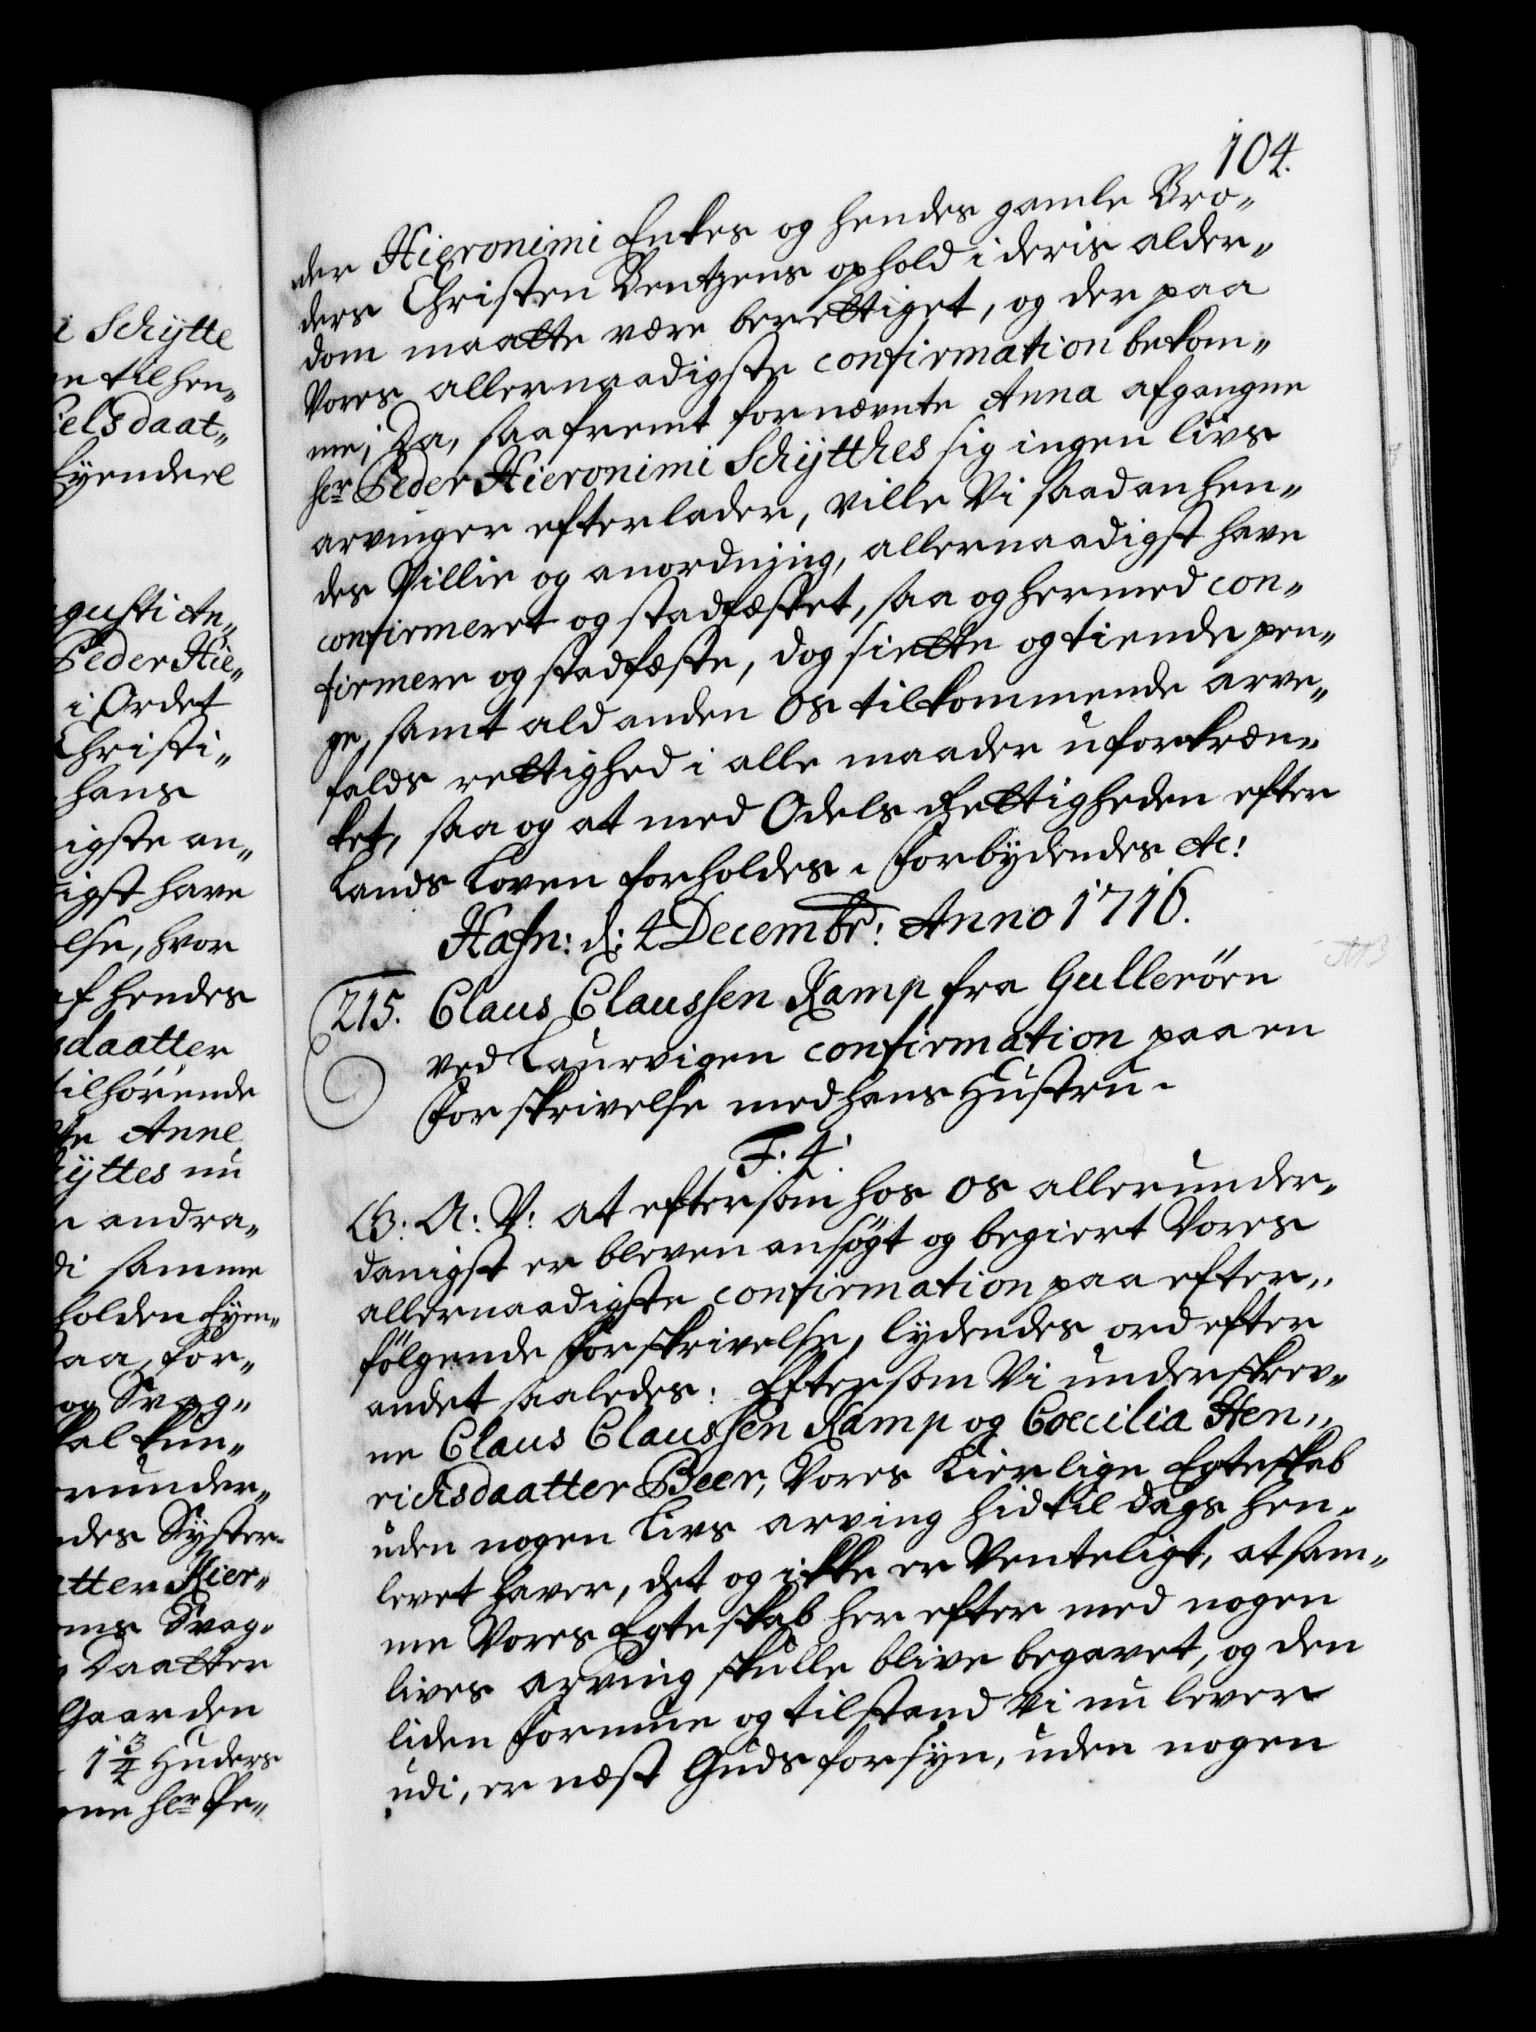 104.
der Hieronimi Enkes og hendes gamle Bro„
ders Christen Bentzens ophold i deris alder„
dom maatte være berettiget, og der paa
Vores allernaadigste confirmation bekom„
me; Da, saafremt fornævnte Anna afgangne
hr Peder Hieronimi Schÿtthes sig ingen livs
arvinger efterlader, ville Vi saadan hen„
des Villie og anordning, allernaadigst have
confirmeret og stadfæstet, saa og hermed con„
firmere og stadfæste, dog siette og tiende pen„
ge, samt ald anden Os tilkommende arve„
falds rettighed i alle maader uforkræn„
ket, saa og at med Odels Rettigheden efter
Lands Loven forholdes. Forbydendes etc:
Hafn: d: 4 Decembr: Anno 1716.
215. Claus Claussen Kamp fra Gullerörn
ved Laurvigen confirmation paa en
Forskrivelse med hans Hustru.
F: 4.
G: A: V: at eftersom hos os allerunder„
danigst er bleven ansøgt og begiert Vores
allernaadigste confirmation paa efter„
følgende Forskrivelse, lydendes ord efter
andet saaledes: Eftersom Vi underskrev„
ne Claus Claussen Kamp og Coecilia Hen„
richsdaatter Beer, Vores Kierlige Egteskab
uden nogen Livs arving hidtil dags hen„
levet haver, det og ikke er Venteligt, at sam„
me Vores Egteskab her efter med nogen
lives arving skulle blive begavet, og den
liden formue og tilstand Vi nu lever
udi, er næst Guds forsÿn, uden nogen
i Schÿtte
ne til hen„
iels daat„
Eyendeel
gusti An„
Peder Hie„
i Ordet
Christi„
hans
igste an„
igst have
else, hvor
af hendes
sdaatter
tilhørende
te Anne
hÿttes nu
n andra„
di samme
holden Eyen„
saa, for„
og Svag„
kal kun„
runder„
ndes Syster„
atter Kier„
ms Svag„
Daatter
Gaarden
1 3/4 Huders
nne hr Pe„